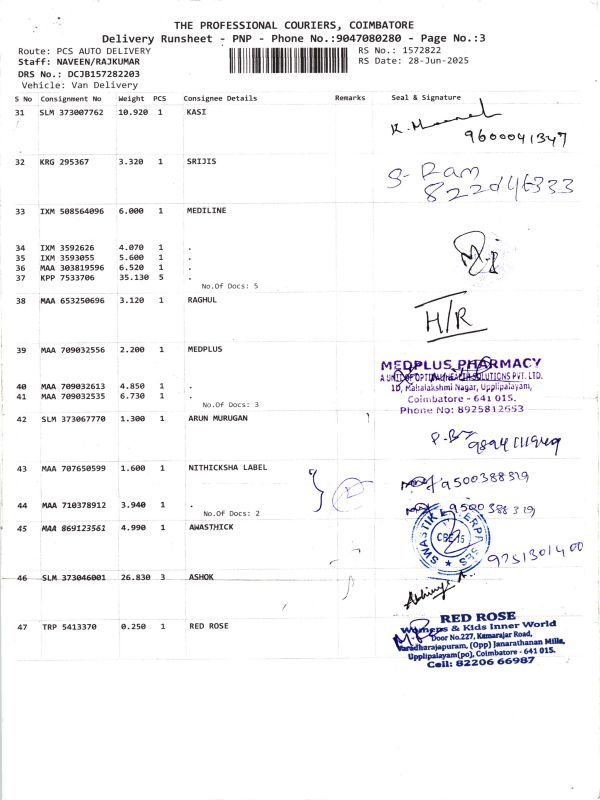 THE PROFESSIONAL COURIERS, COIMBATORE
Delivery Runsheet - PNP - Phone No.:9047080280 - Page No.:3
Route: PCS AUTO DELIVERY
RS No.: 1572822
Staff: NAVEEN/RAJKUMAR
RS Date: 28-Jun-2025
DRS No.: DCJB157282203
Vehicle: Van Delivery
S No Consignment No Weight PCS Consignee Details Remarks Seal & Signature
31 SLM 373007762 10.920 1 KASI
9600041347
32 KRG 295367 3.320 1 SRIJIS
S- Ram
33 IXM 508564096 6.000 1 MEDILINE
34 IXM 3592626 4.070 1 .
35 IXM 3593055 5.600 1 .
36 MAA 303819596 6.520 1 .
37 KPP 7533706 35.130 5 .
No.Of Docs: 5
38 MAA 653250696 3.120 1 RAGHUL
H/R
39 MAA 709032556 2.200 1 MEDPLUS
MEDPLUS PHARMACY
A UNIT OF OPTIVAL HEALTH SOLUTIONS PVT. LTD.
40 MAA 709032613 4.850 1 .
1D, Mahalakshmi Nagar, Upplipalayam,
41 MAA 709032535 6.730 1 .
Coimbatore - 641 015.
No.Of Docs: 3
Phone No: 8925812653
42 SLM 373067770 1.300 1 ARUN MURUGAN
43 MAA 707650599 1.600 1 NITHICKSHA LABEL
9500388319
44 MAA 710378912 3.940 1 .
9500388319
No.Of Docs: 2
45 MAA 869123561 4.990 1 AWASTHICK
SWASTIK ENTERPRISES
CBE-15
9751301400
46 SLM 373046001 26.830 3 ASHOK
47 TRP 5413370 0.250 1 RED ROSE
RED ROSE
Womens & Kids Inner World
Door No.227, Kamarajar Road,
Varadharajapuram, (Opp) Janarathanan Mills,
Upplipalayam(po), Coimbatore - 641 015.
Cell: 82206 66987